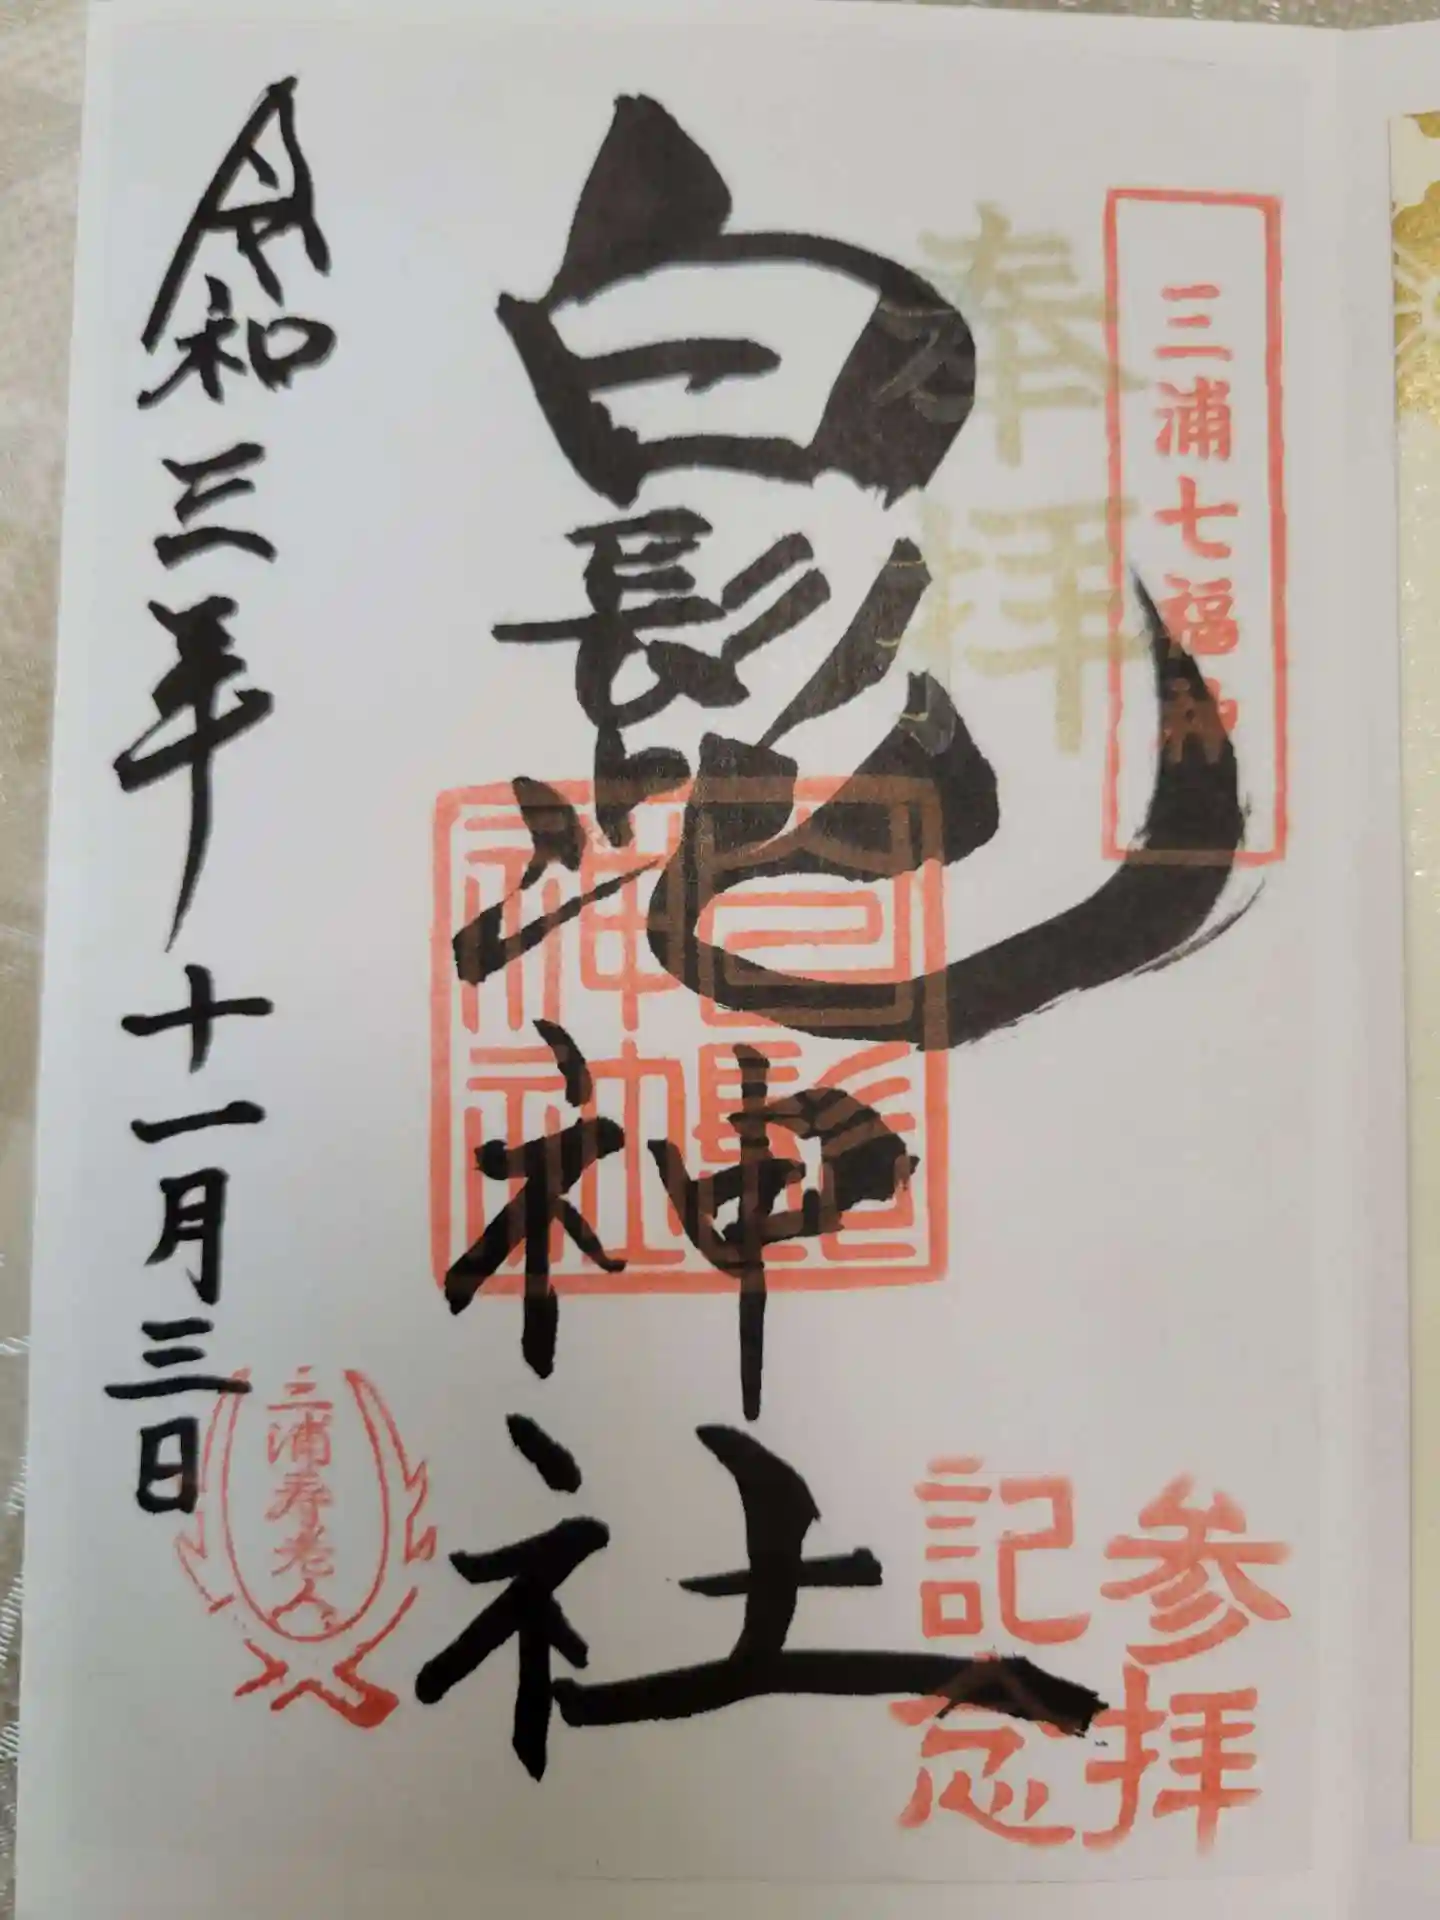 三浦七福神
奉拝
参拝
記念
白髭神社
白髭
神社
三浦寿老人
令和三年十一月三日